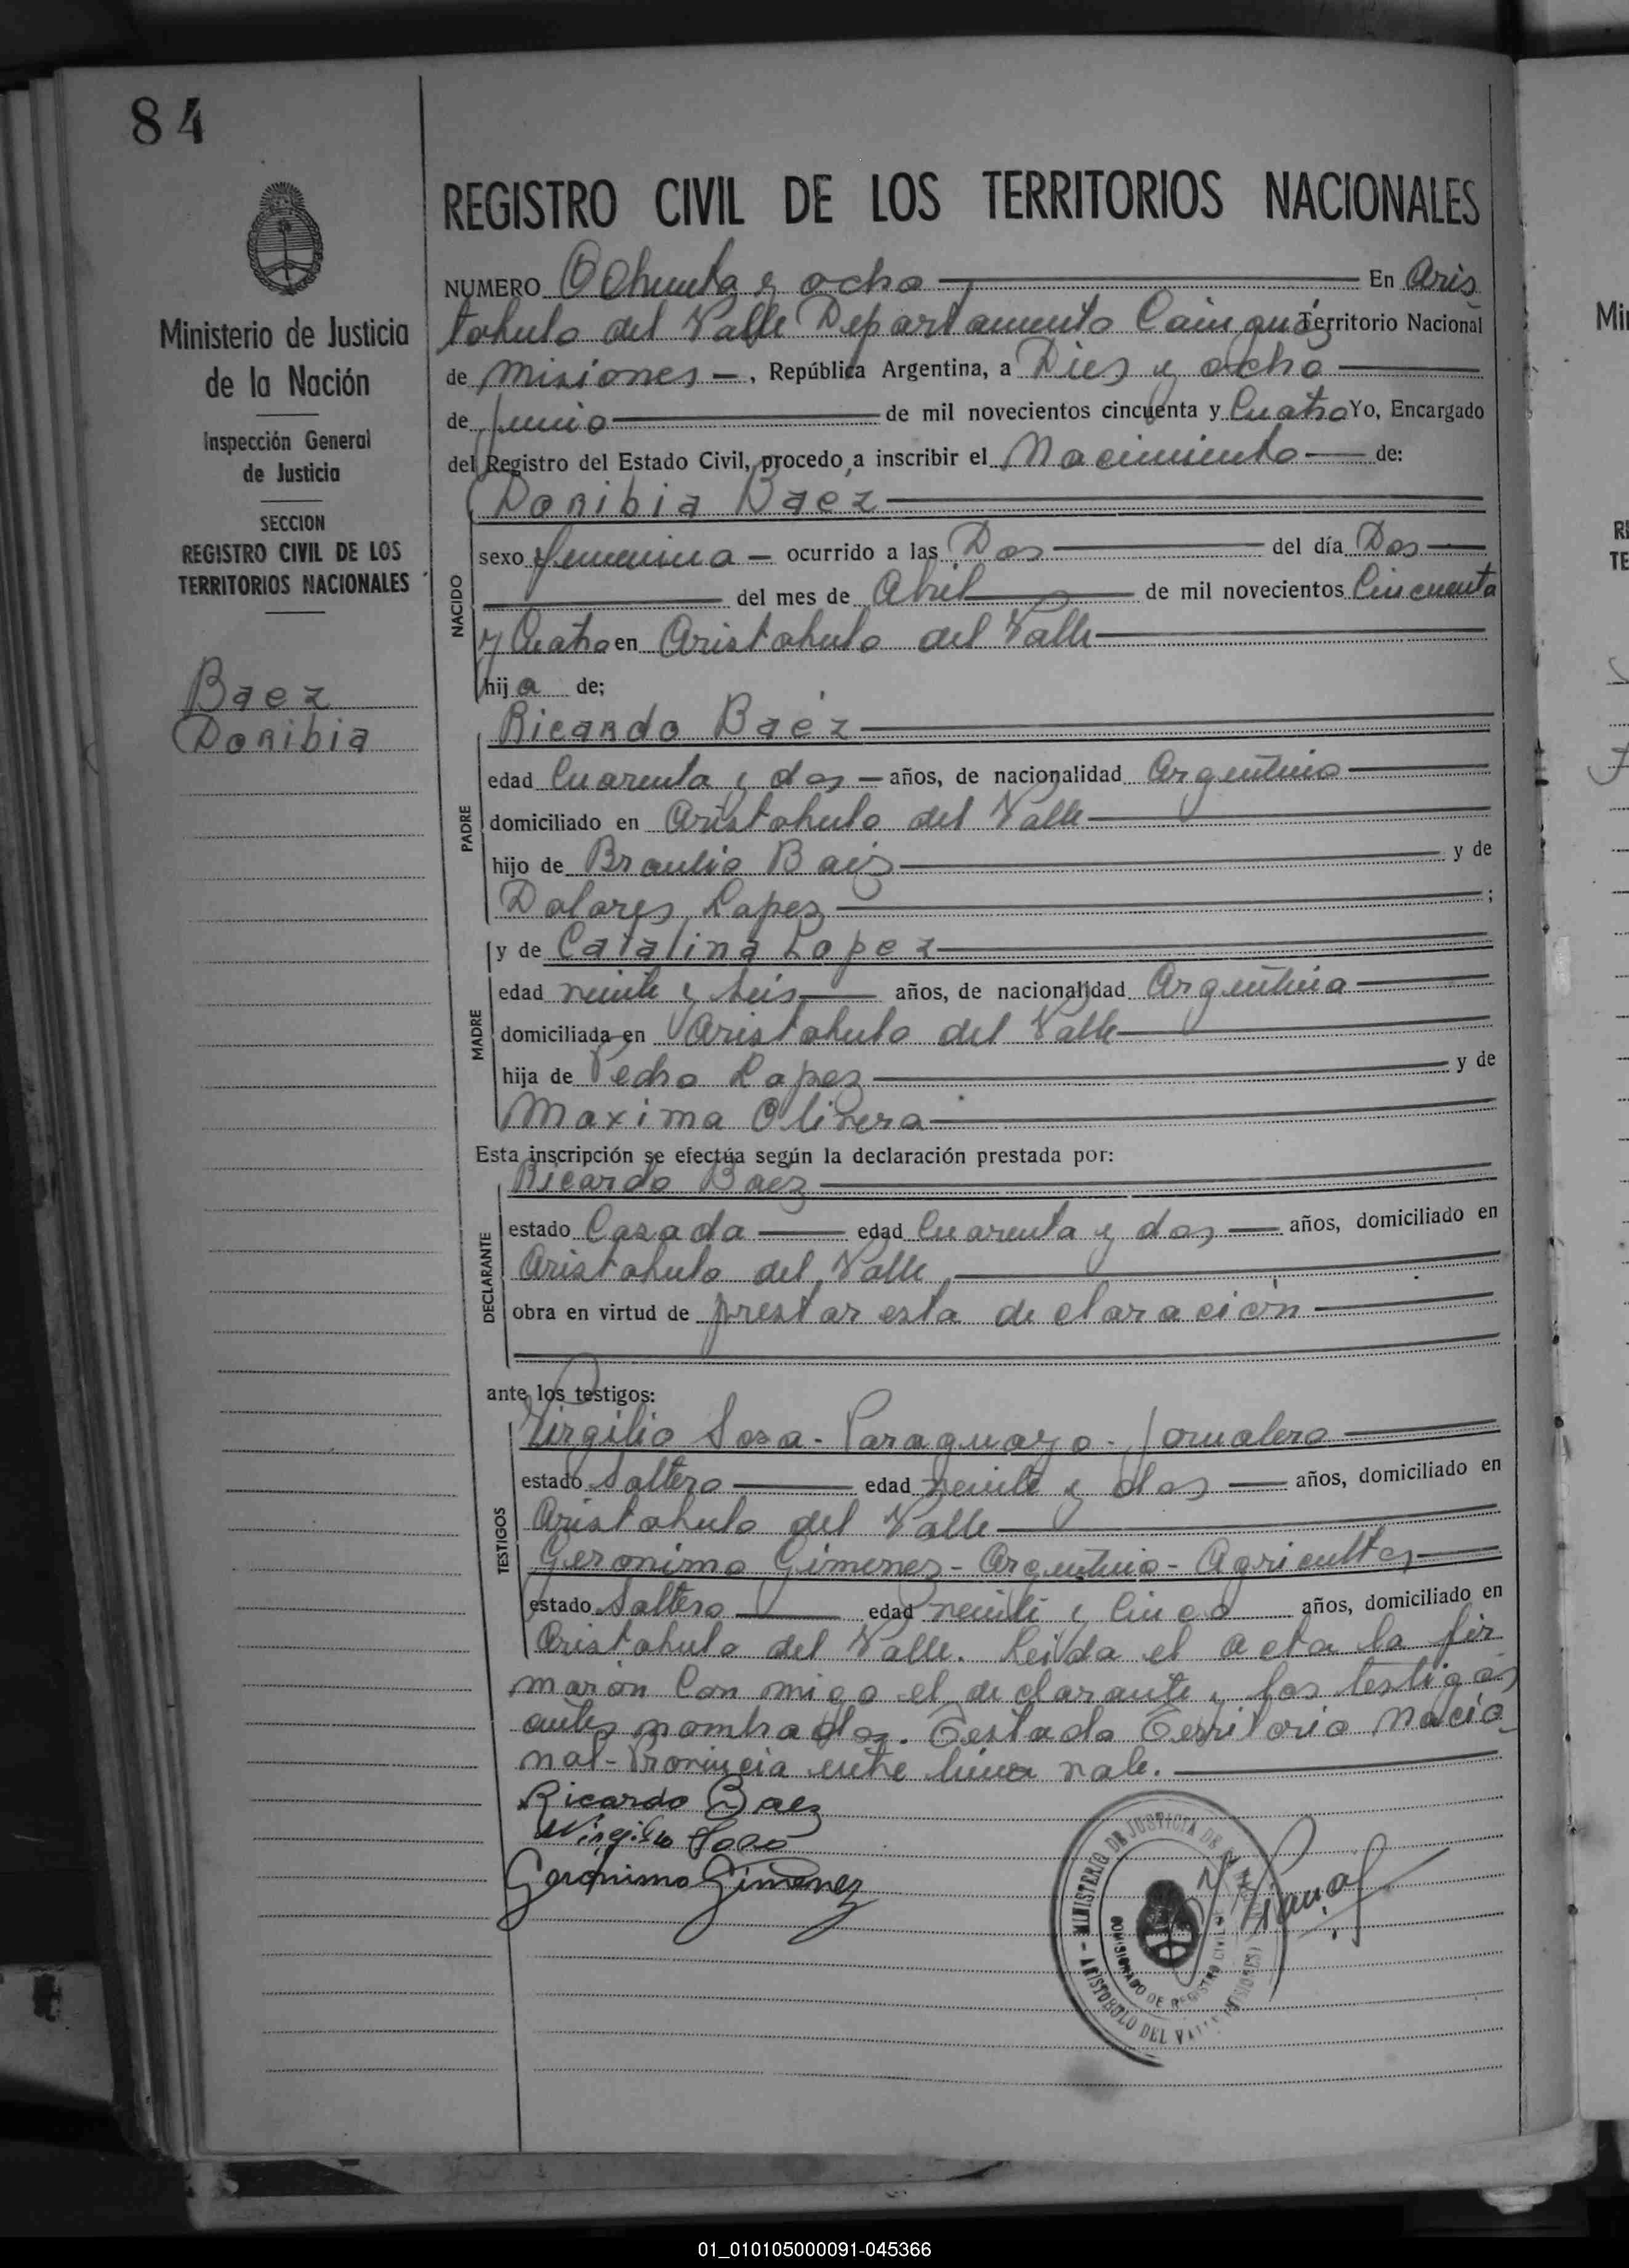 84
REGISTRO CIVIL DE LOS TERRITORIOS NACIONALES
Ministerio de Justicia
de la Nación
Inspección General
de Justicia
SECCION
REGISTRO CIVIL DE LOS
TERRITORIOS NACIONALES
Baez
Doribia
NUMERO Ochenta y ocho En Aris
tobulo del Valle Departamento Cainguás Territorio Nacional
de Misiones -, República Argentina, a Dies y ocho
de junio de mil novecientos cincuenta y Cuatro Yo, Encargado
del Registro del Estado Civil, procedo a inscribir el Nacimiento de:
Doribia Baez
NACIDO
sexo femenina - ocurrido a las Dos del día Dos
del mes de Abril de mil novecientos Cincuenta
y Cuatro en Aristobulo del Valle
hija de;
Ricardo Baez
PADRE
edad Cuarenta y dos - años, de nacionalidad Argentino
domiciliado en Aristobulo del Valle
hijo de Braulio Baez y de
Dolores Lopez ;
y de Catalina Lopez
MADRE
edad veinte y seis años, de nacionalidad Argentina
domiciliada en Aristobulo del Valle
hija de Pedro Lopez y de
Maxima Olivera
Esta inscripción se efectúa según la declaración prestada por:
Ricardo Baez
DECLARANTE
estado Casada edad Cuarenta y dos años, domiciliado en
Aristobulo del Valle
obra en virtud de prestar esta declaración
ante los testigos:
Virgilio Sosa - Paraguayo - Jornalero
TESTIGOS
estado Soltero edad veinte y dos años, domiciliado en
Aristobulo del Valle
Geronimo Gimenez - Argentino - Agricultor
estado Soltero edad veinte y cinco años, domiciliado en
Aristobulo del Valle. Leida el acta la fir
marón Con migo el declarante y los testigos
antes nombrados. Testado Territorio Nacio
nal - Provincia entre linea vale.
Ricardo Baez
Virgilio Sosa
Gerónimo Gimenez
MINISTERIO DE JUSTICIA DE LA NACION
COMISIONADO DE REGISTRO CIVIL
ARISTOBULO DEL VALLE (MISIONES)
Mi
RE
TE
01_010105000091-045366